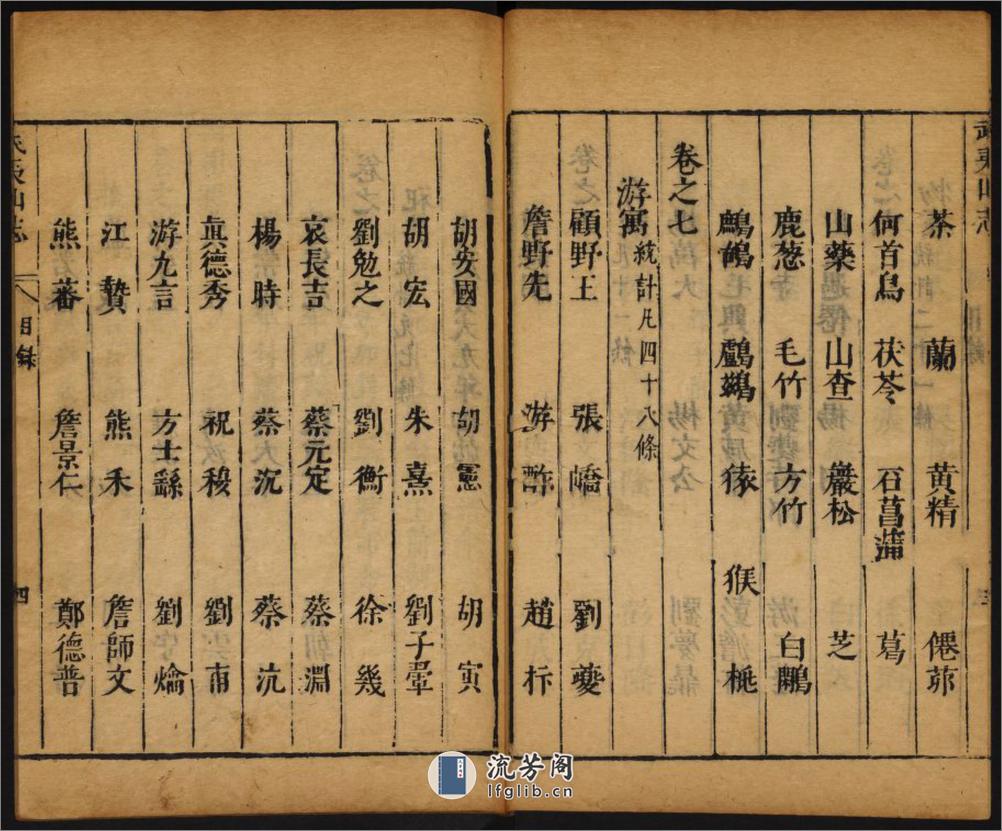 武夷山志
茶 蘭 黄精 僊茆
何首烏 茯苓 石菖蒲 葛
山藥 山查 巖松 芝
鹿葱 毛竹 方竹 白鷴
鷓鴣 猿 猴
卷之七
游寓 統計凡四十八條
顧野王 張嶠 劉夔
詹野先 游酢 趙抃
胡安國 胡憲 胡寅
胡宏 朱熹 劉子翬
劉勉之 劉衡 徐幾
哀長吉 蔡元定 蔡淵
楊時 蔡沉 蔡沆
眞德秀 祝穆 劉甫
游九言 方士繇 劉爚
江贄 熊禾 詹師文
熊蕃 詹景仁 鄭德普
武夷山志 目録 四
流芳阁
lfglib.cn